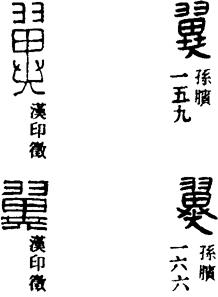 翼
孫臏
一五九
翼
孫臏
一六六
翼
漢印徵
翼
漢印徵